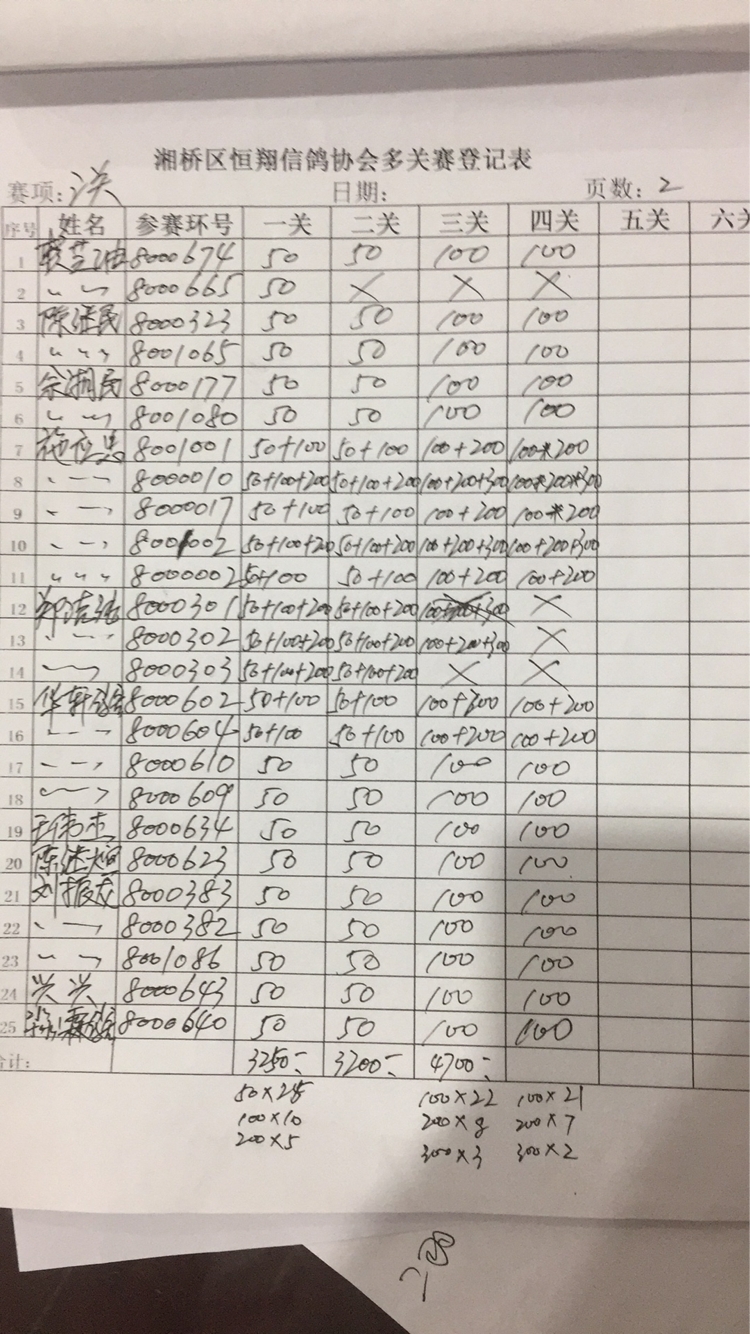 湘桥区恒翔信鸽协会多关赛登记表
赛项: 决 日期: 页数: 2
序号 姓名 参赛环号 一关 二关 三关 四关 五关 六关
1 8000674 50 50 100 100
2 〃 〃 8000665 50 × × ×
3 8000323 50 50 100 100
4 〃 〃 8001065 50 50 100 100
5 余湘民 8000177 50 50 100 100
6 〃 〃 8001080 50 50 100 100
7 8001001 50+100 50+100 100+200 100*200
8 〃 〃 8000010 50+100+200 50+100+200 100+200+300 100*200*300
9 〃 〃 8000017 50+100 50+100 100+200 100*200
10 〃 〃 8001002 50+100+200 50+100+200 100+200+300 100+200+300
11 〃 〃 8000002 50+100 50+100 100+200 100+200
12 8000301 50+100+200 50+100+200 100+200+300 ×
13 〃 〃 8000302 50+100+200 50+100+200 100+200+300 ×
14 〃 〃 8000303 50+100+200 50+100+200 × ×
15 华轩 8000602 50+100 50+100 100+200 100+200
16 〃 〃 8000604 50+100 50+100 100+200 100+200
17 〃 〃 8000610 50 50 100 100
18 〃 〃 8000609 50 50 100 100
19 王伟杰 8000634 50 50 100 100
20 8000623 50 50 100 100
21 刘振茂 8000383 50 50 100 100
22 〃 〃 8000382 50 50 100 100
23 〃 〃 8001086 50 50 100 100
24 兴兴 8000643 50 50 100 100
25 8000640 50 50 100 100
合计: 3250- 3200- 4700-
50×25 100×22 100×21
100×10 200×8 200×7
200×5 300×3 300×2